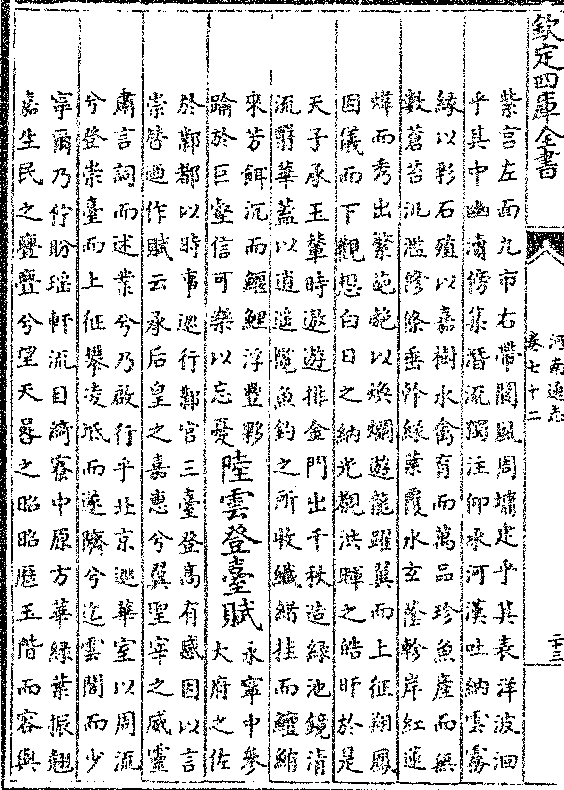 欽定四庫全書
河南通志
卷七十二
二十三
紫言左面九市右帶閬風周墉建乎其表洋波迴
乎其中幽瀆傍集潛流獨注仰承河漢吐納雲霧
緣以彩石殖以嘉樹水禽育而萬品珍魚產而無
數蒼苔汎濫修條垂幹綠葉覆水玄蔭軫岸紅蓮
煒而秀出繁葩赩以煥爛遊龍躍翼而上征翔鳳
因儀而下觀想白日之納光觀洪暉之皓旰於是
天子承玉輦時遨遊排金門出千秋造綠池鏡清
流翳華蓋以逍遙覽魚釣之所收纖緒挂而鱣鮪
來芳餌沉而鰋鯉浮豐夥
踰於巨壑信可樂以忘憂
陸雲登臺賦
永寧中參
大府之佐
於鄴都以時事巡行鄴宮三臺登高有感因以言
崇替廼作賦云承后皇之嘉惠兮翼聖宰之威靈
肅言詞而述業兮乃啟行乎北京巡華室以周流
兮登崇臺而上征攀凌坻而遂隮兮迄雲閣而少
寧爾乃佇盼瑤軒流目綺寮中原方華綠葉振翹
嘉生民之亹亹兮望天晷之昭昭歷玉階而容與